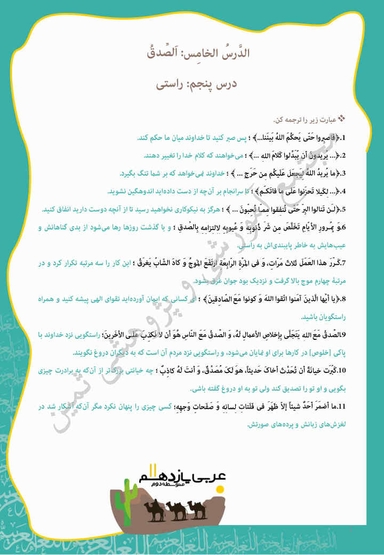 الدَّرسُ الخامِس: اَلصِّدقُ
درس پنجم: راستی
❖ عبارت زیر را ترجمه کن.
1.﴿فَاصبِروا حَتّی یَحکُمَ اللهُ بَینَنا...﴾؛ پس صبر کنید تا خداوند میان ما حکم کند.
2.﴿... یُریدونَ أن یُبَدِّلوا کَلامَ اللهِ ...﴾؛ می‌خواهند که کلام خدا را تغییر دهند.
3.﴿ما یُریدُ اللهُ لِیَجعَلَ عَلَیکُم مِن حَرَجٍ ...﴾؛ خداوند نمی‌خواهد که بر شما تنگ بگیرد.
4.﴿... لِکَیلا تَحزَنوا عَلی ما فاتَکُم﴾؛ تا سرانجام بر آن‌چه از دست داده‌اید اندوهگین نشوید.
5.﴿لَن تَنالوا البِرَّ حَتّی تُنفِقوا مِمّا تُحِبّونَ ...﴾؛ هرگز به نیکوکاری نخواهید رسید تا از آنچه دوست دارید انفاق کنید.
6.وَ بِمُرورِ الأیّامِ تَخَلَّصَ مِن شَرِّ ذُنوبِهِ وَ عُیوبِهِ لِالتِزامِهِ بِالصِّدقِ؛ و با گذشت روزها رها می‌شود از بدی گناهانش و
عیب‌هایش به خاطر پایبندی‌اش به راستی.
7.کَرَّرَ هذا العَمَلَ ثَلاثَ مَرّاتٍ، وَ فی المَرَّةِ الرّابِعَةِ ارتَفَعَ المَوجُ وَ کادَ الشّابُّ یَغرَقُ؛ این کار را سه مرتبه تکرار کرد و در
مرتبهٔ چهارم موج بالا گرفت و نزدیک بود جوان غرق بشود.
8.﴿یا أیُّها الَّذینَ آمَنوا اتَّقوا اللهَ وَ کونوا مَعَ الصّادِقینَ﴾؛ ای کسانی که ایمان آورده‌اید تقوای الهی پیشه کنید و همراه
راستگویان باشید.
9.الصِّدقُ مَعَ اللهِ یَتَجَلّی بِإخلاصِ الأعمالِ لَهُ، وَ الصِّدقُ مَعَ النّاسِ هُوَ أن لا نَکذِبَ عَلَی الآخَرینَ؛ راستگویی نزد خداوند با
پاکی (خلوص) در کارها برای او نمایان می‌شود، و راستگویی نزد مردم آن است که به دیگران دروغ نگویند.
10.کَبُرَت خیانَةً أن تُحَدِّثَ أخاکَ حَدیثاً، هوَ لَکَ مُصَدِّقٌ، وَ أنتَ لَهُ کاذِبٌ؛ چه خیانتی بزرگ‌تر از آن‌که به برادرت چیزی
بگویی و او تو را تصدیق کند ولی تو به او دروغ گفته باشی.
11.ما أضمَرَ أحَدٌ شَیئاً إلّا ظَهَرَ فی فَلَتاتِ لِسانِهِ وَ صَفَحاتِ وَجهِهِ؛ کسی چیزی را پنهان نکرد مگر آن‌که آشکار شد در
لغزش‌های زبانش و پرده‌های صورتش.
عربی یازدهم
متوسطه دوم